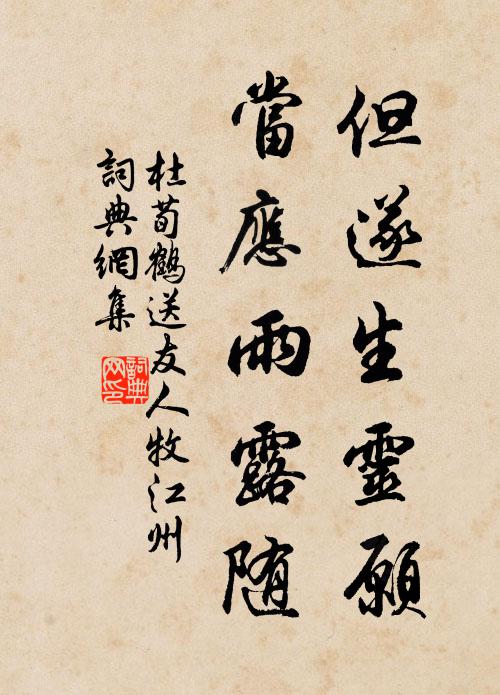 但遂生靈願
當應雨露隨
杜荀鶴送友人牧江州
詞典網集
詞典
网印